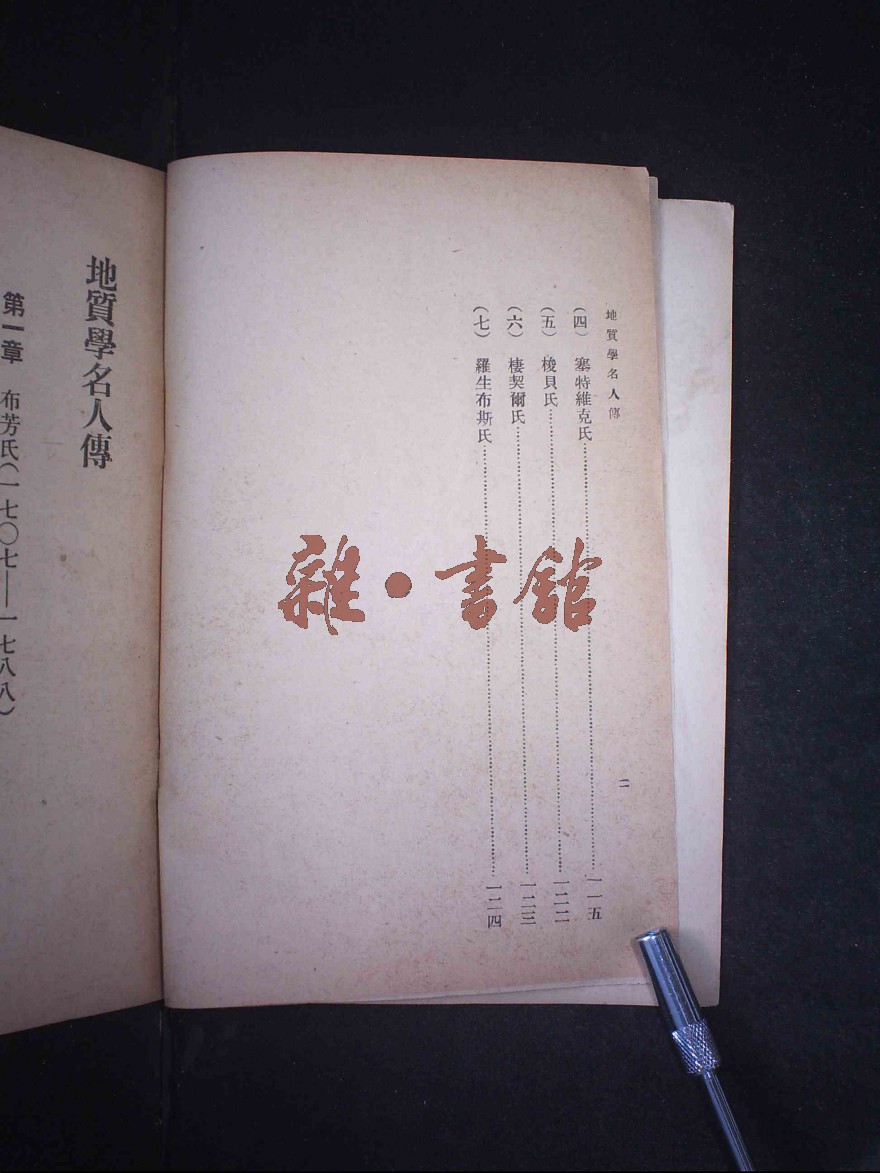 地質學名人傳
二
(四) 塞特維克氏……一一五
(五) 梭貝氏……一二二
(六) 棲契爾氏……一二三
(七) 羅生布斯氏……一二四
地質學名人傳
第一章 布芳氏(一七〇七——一七八八)
雜·書館